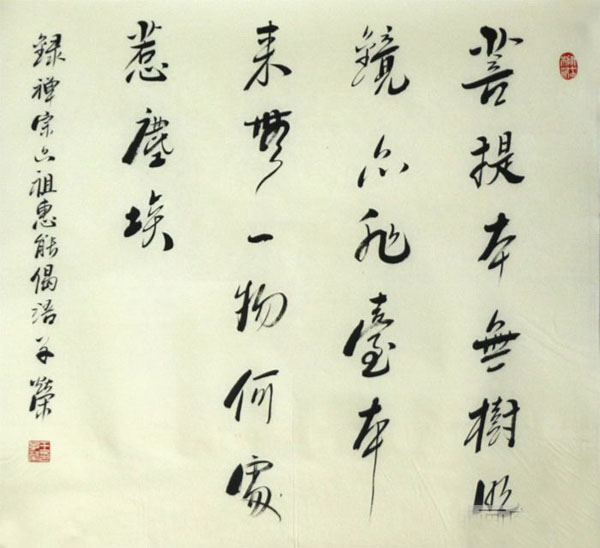 菩提本無樹明
鏡亦非臺本
来無一物何處
惹塵埃
録禪宗六祖惠能偈語
榮